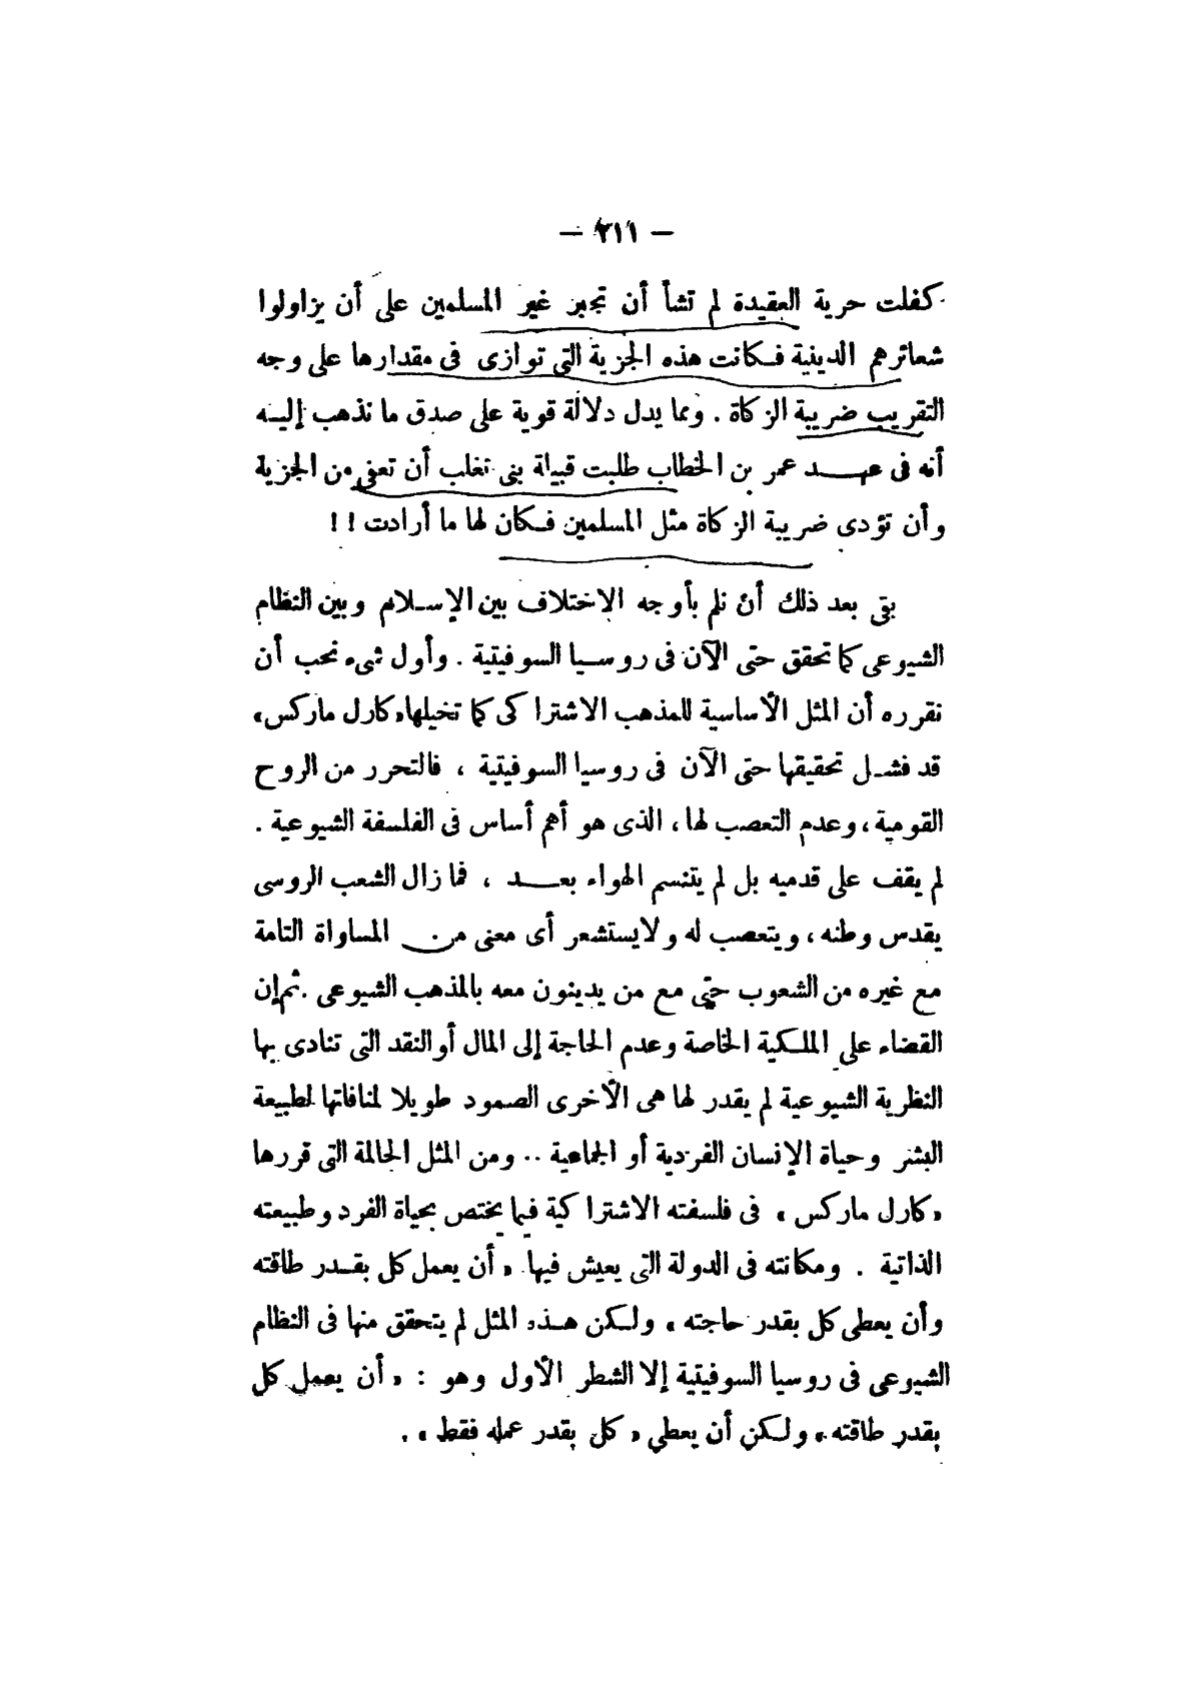 — ٢١١ —
كفلت حرية العقيدة لم تشأ أن تجبر غير المسلمين على أن يزاولوا
شعائرهم الدينية فكانت هذه الجزية التى توازى فى مقدارها على وجه
التقريب ضريبة الزكاة . ومما يدل دلالة قوية على صدق ما نذهب إليه
أنه فى عهد عمر بن الخطاب طلبت قبيلة بنى تغلب أن تعفى من الجزية
وأن تؤدى ضريبة الزكاة مثل المسلمين فكان لها ما أرادت ! !
بقى بعد ذلك أن نلم بأوجه الاختلاف بين الإسلام وبين النظام
الشيوعى كما تحقق حتى الآن فى روسيا السوفيتية . وأول شىء نحب أن
نقرره أن المثل الأساسية للمذهب الاشتراكى كما تخيلها «كارل ماركس»
قد فشل تحقيقها حتى الآن فى روسيا السوفيتية ، فالتحرر من الروح
القومية ، وعدم التعصب لها ، الذى هو أهم أساس فى الفلسفة الشيوعية .
لم يقف على قدميه بل لم يتنسم الهواء بعد ، فما زال الشعب الروسى
يقدس وطنه ، ويتعصب له ولا يستشعر أى معنى من المساواة التامة
مع غيره من الشعوب حتى مع من يدينون معه بالمذهب الشيوعى . ثم إن
القضاء على الملكية الخاصة وعدم الحاجة إلى المال أو النقد التى تنادى بها
النظرية الشيوعية لم يقدر لها هى الأخرى الصمود طويلا لمنافاتها لطبيعة
البشر وحياة الإنسان الفردية أو الجماعية .. ومن المثل الحالمة التى قررها
«كارل ماركس» فى فلسفته الاشتراكية فيما يختص بحياة الفرد وطبيعته
الذاتية . ومكانته فى الدولة التى يعيش فيها «أن يعمل كل بقدر طاقته
وأن يعطى كل بقدر حاجته» ولكن هذه المثل لم يتحقق منها فى النظام
الشيوعى فى روسيا السوفيتية إلا الشطر الأول وهو : «أن يعمل كل
بقدر طاقته» ولكن أن يعطى «كل بقدر عمله فقط» .